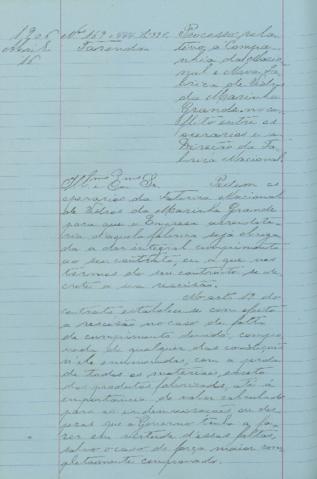 1906
Maio
16
Nº 169
Fazenda
Processo rela
tivo á Compa
nhia da Nacio
nal e Nova Fa
brica de Vidros
da Marinha
Grande no con
flito entre os
operarios e a
Direcção da Fa
brica Nacional.
Illmo e Exmo Sr. Pedem os
operarios da Fabrica Nacional
de Vidros da Marinha Grande
para que a Empresa arrendata
ria daquela fabrica seja obriga
da a dar integral cumprimento
ao seu contrato, ou a que nos
termos do seu contrato se de
crete a sua rescisão.
No art. 12 do
contrato estabelece-se com efeito
a rescisão no caso de falta
de cumprimento devido, compro
vada de qualquer das condições
n'elle enumeradas, com a perda
de todos os materiaes, exceto
dos productos fabricados, até á
importancia do valor calculado
para as indemnisações ou des
pezas que o Governo tenha a fa
zer em virtude d'essas faltas,
salvo o caso de força maior com
pletamente comprovado.